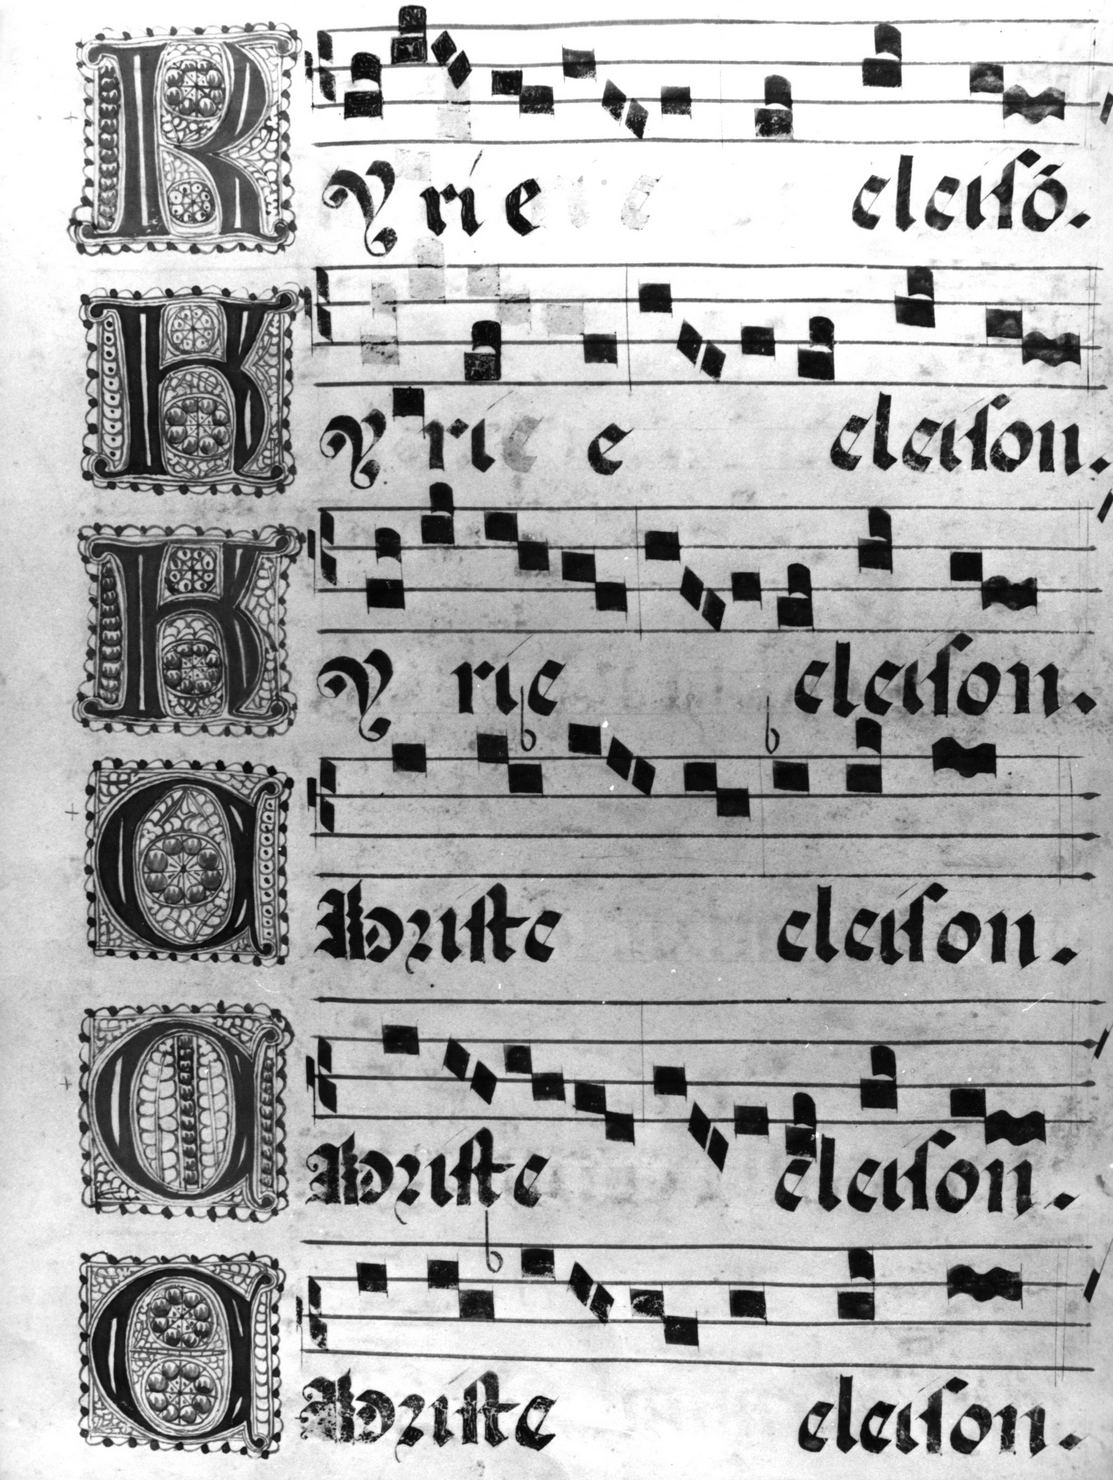 KYrie eleisō.
KYrie e eleison.
KYrie eleison.
Christe eleison.
Christe eleison.
Christe eleison.